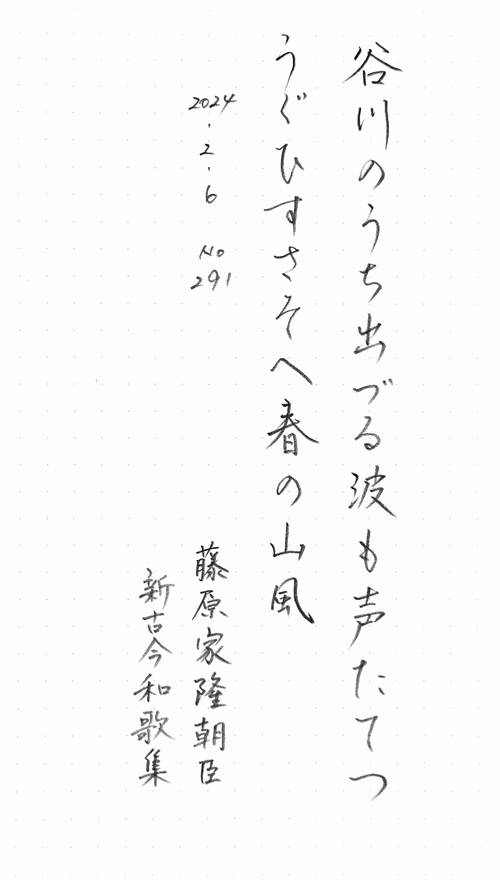 谷川のうち出づる波も声たてつ
うぐひすさそへ春の山風
2024.2.6 No 291
藤原家隆朝臣
新古今和歌集